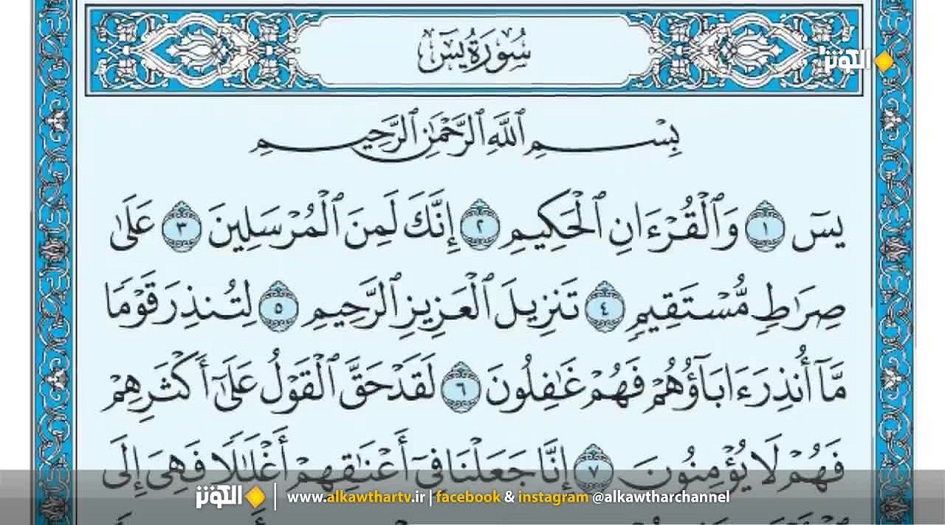 سُورَةُ يسٓ
الكوثر
بِسْمِ ٱللَّهِ ٱلرَّحْمَٰنِ ٱلرَّحِيمِ
يسٓ ١ وَٱلْقُرْءَانِ ٱلْحَكِيمِ ٢ إِنَّكَ لَمِنَ ٱلْمُرْسَلِينَ ٣ عَلَىٰ
صِرَٰطٍ مُّسْتَقِيمٍ ٤ تَنزِيلَ ٱلْعَزِيزِ ٱلرَّحِيمِ ٥ لِتُنذِرَ قَوْمًا
مَّآ أُنذِرَ ءَابَآؤُهُمْ فَهُمْ غَٰفِلُونَ ٦ لَقَدْ حَقَّ ٱلْقَوْلُ عَلَىٰٓ أَكْثَرِهِمْ
فَهُمْ لَا يُؤْمِنُونَ ٧ إِنَّا جَعَلْنَا فِىٓ أَعْنَٰقِهِمْ أَغْلَٰلًا فَهِىَ إِلَى
الكوثر | www.alkawthartv.ir | facebook & instagram @alkawtharchannel